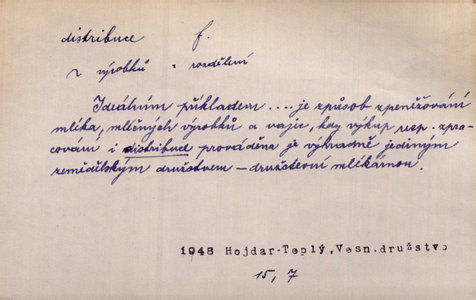 distribuce f.
z výrobků = rozdělení
Ideálním příkladem .... je způsob zpeněžování
mléka, mléčných výrobků a vajec, kdy výkup resp. zpra-
cování i distribuce prováděna je výhradně jediným
zemědělským družstvem – družstevní mlékárnou.
1948 Hojdar-Teplý, Vesn. družstvo
15, 7